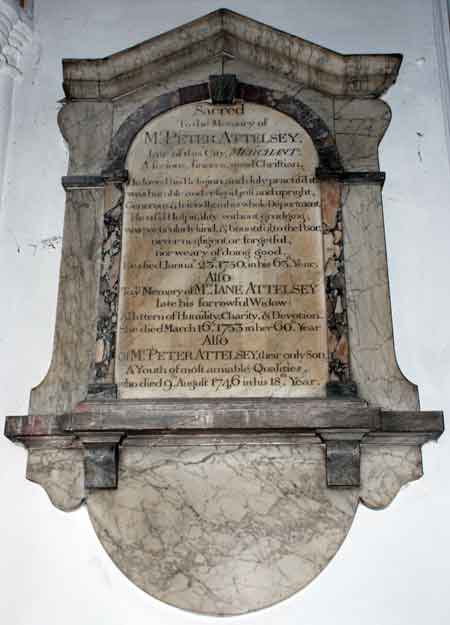 Sacred
To the Memory of
Mr. PETER ATTELSEY,
late of this City, MERCHANT.
A ſerious, ſincere, good Chriſtian,
He loved his Religion, and duly practiſ'd it
was humble and reſign'd, juſt and upright,
Generous, & friendly in his whole Department,
He uſ'd Hoſpitality without grudging,
was particularly kind, & bountiful to the Poor,
never negligent or forgetful,
nor weary of doing good,
he died Janua. 23, 1750, in his 63 Year,
Alſo
To ye Memory of Mrs. JANE ATTELSEY
late his ſorrowful Widow:
A Pattern of Humility, Charity, & Devotion.
She died March 16th, 1753 in her 60th Year
Alſo
Of Mr. PETER ATTELSEY, their only Son,
A Youth of moſt amiable Qualities,
who died 9. Auguſt 1746 in his 18th Year.